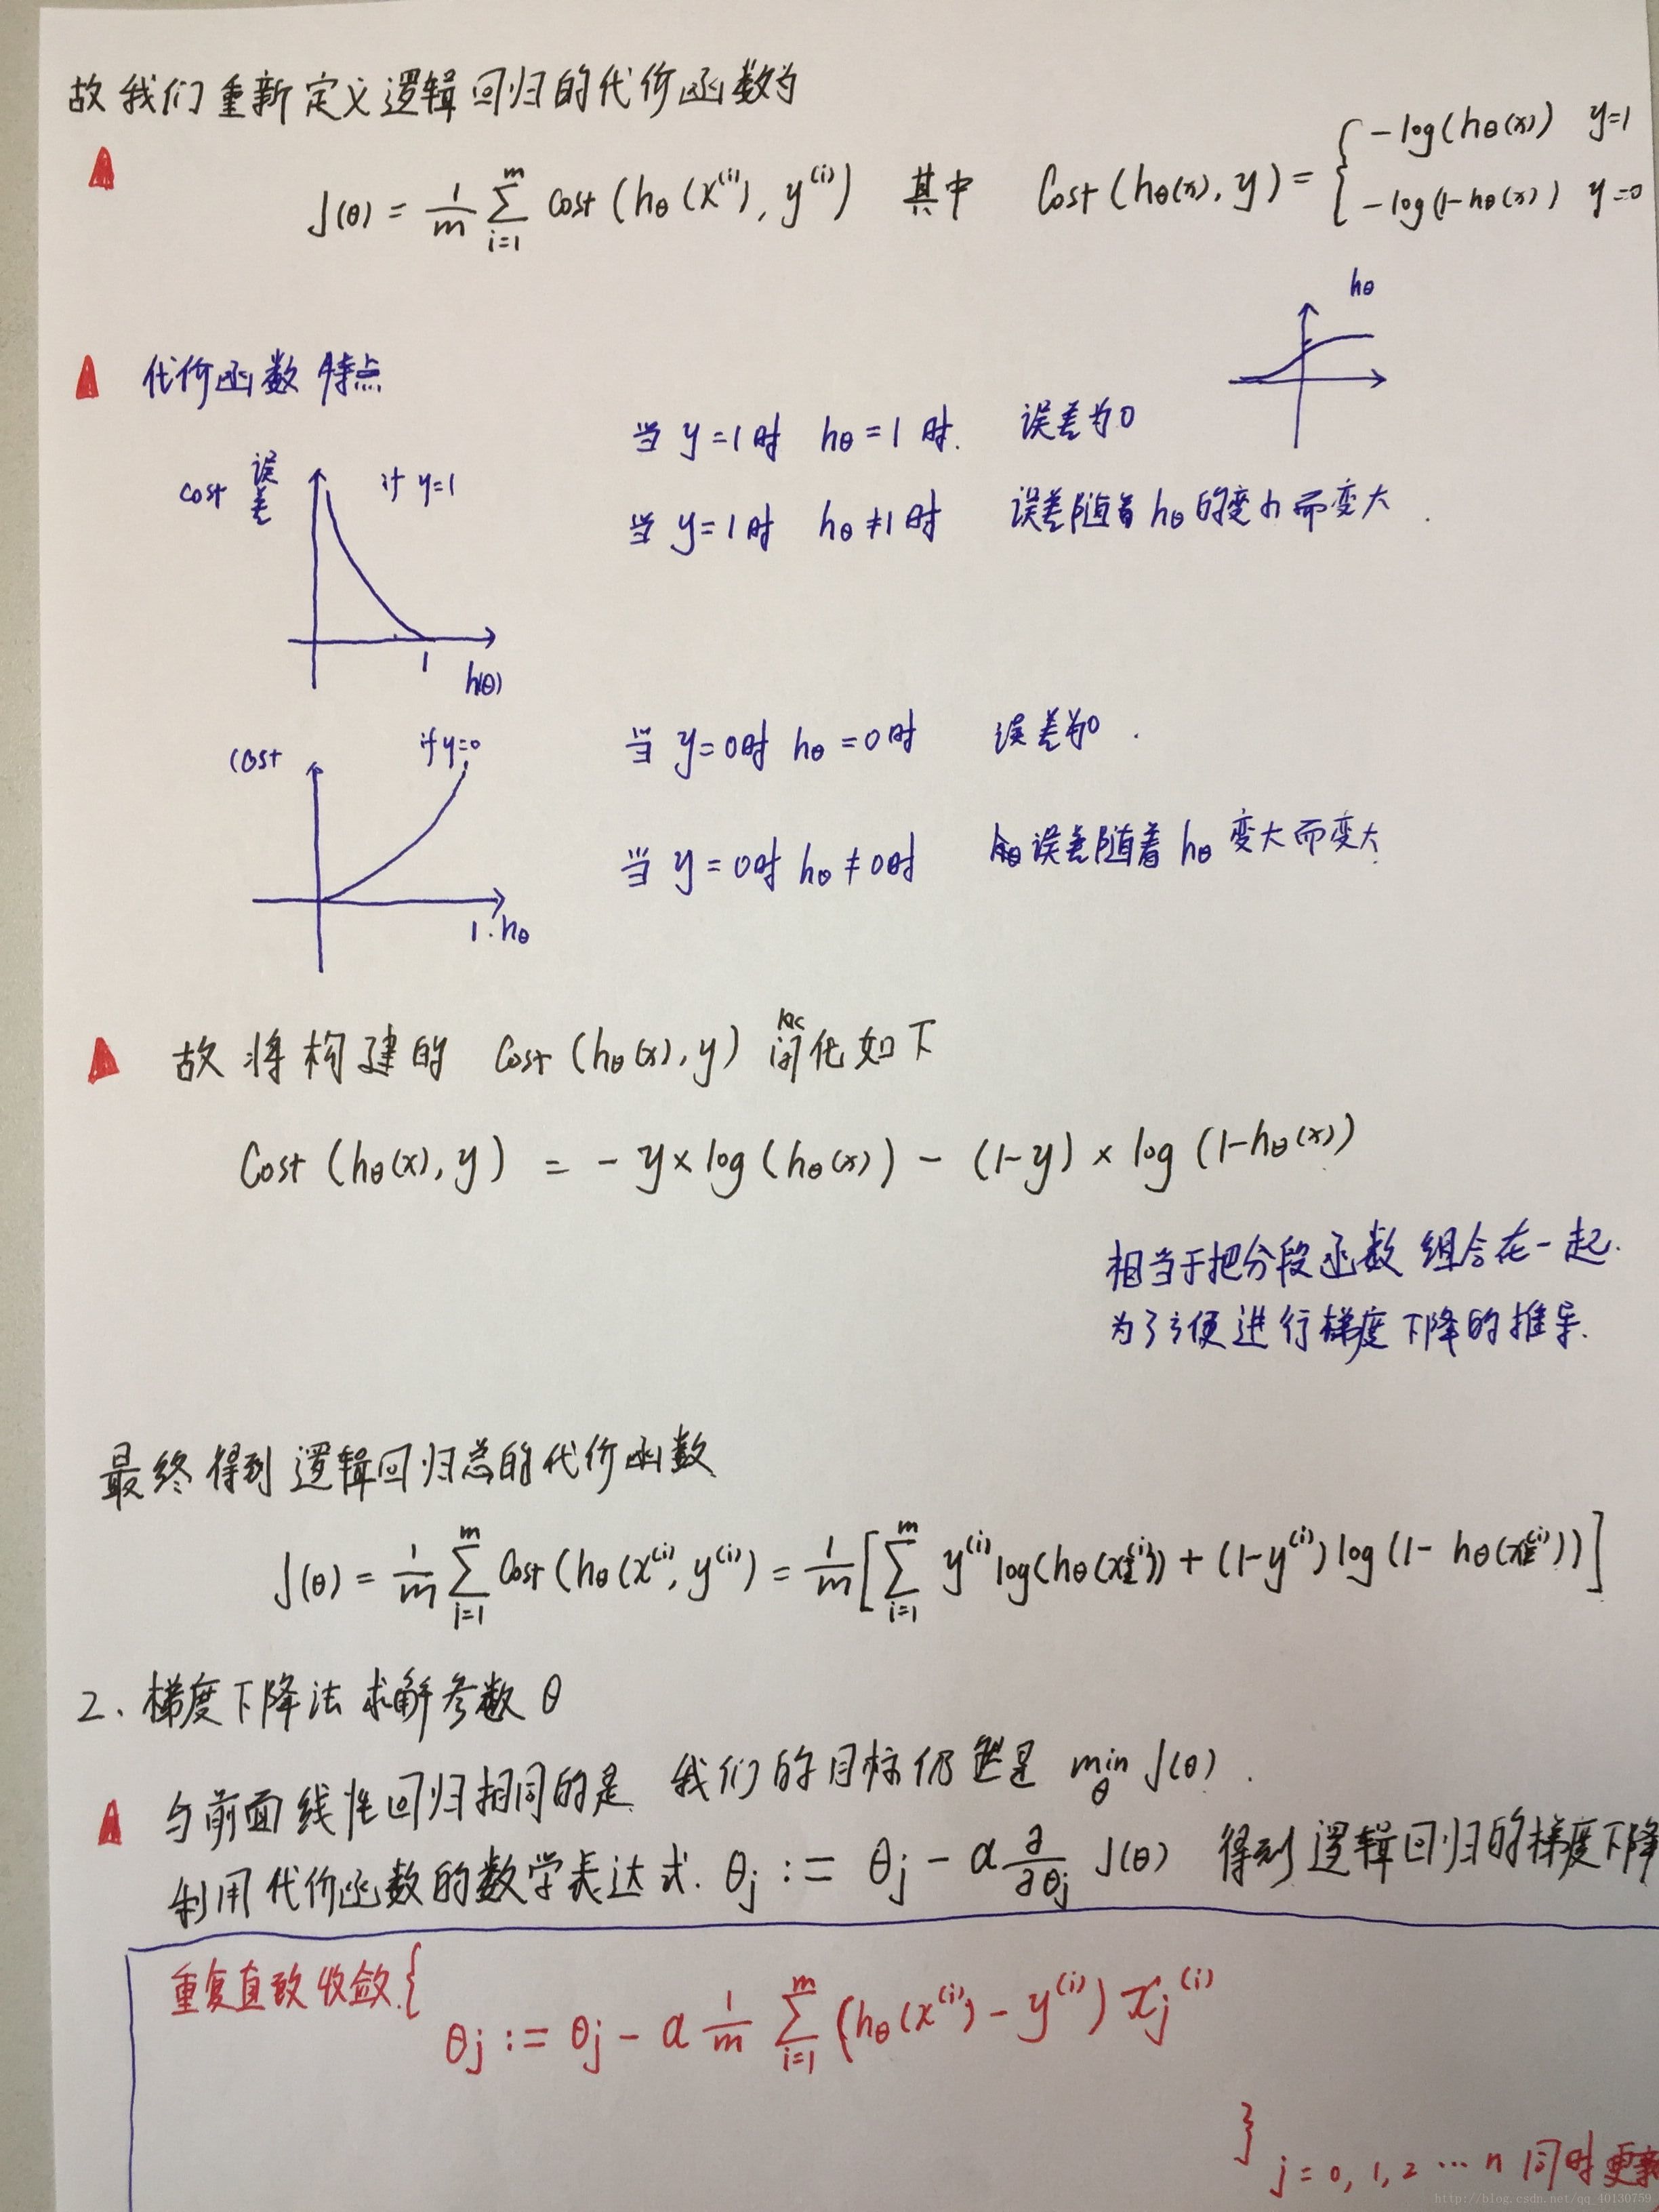 故我们重新定义逻辑回归的代价函数为
J(θ) = 1/m ∑_{i=1}^{m} Cost(hθ(x^(i)), y^(i)) 其中 Cost(hθ(x), y) = { -log(hθ(x)) y=1
-log(1-hθ(x)) y=0
hθ
代价函数特点
当 y=1时 hθ=1时. 误差为0
cost 误差 if y=1
当 y=1时 hθ≠1时 误差随着hθ的变小而变大.
1 h(θ)
cost if y=0
当 y=0时 hθ=0时 误差为0.
当 y=0时 hθ≠0时 误差随着hθ变大而变大.
1. hθ
故将构建的 Cost(hθ(x), y) 简化如下
Cost(hθ(x), y) = -y×log(hθ(x)) - (1-y)×log(1-hθ(x))
相当于把分段函数组合在一起.
为了方便进行梯度下降的推导.
最终得到逻辑回归总的代价函数
J(θ) = 1/m ∑_{i=1}^{m} Cost(hθ(x^(i), y^(i)) = 1/m [∑_{i=1}^{m} y^(i) log(hθ(x^(i))) + (1-y^(i)) log(1-hθ(x^(i)))]
2、梯度下降法求解参数θ
与前面线性回归相同的是 我们的目标仍然是 min_θ J(θ).
利用代价函数的数学表达式. θj := θj - α ∂/∂θj J(θ) 得到逻辑回归的梯度下降
重复直致收敛{
θj := θj - α 1/m ∑_{i=1}^{m} (hθ(x^(i)) - y^(i)) xj^(i)
} j = 0, 1, 2 ... n 同时更新
http://blog.csdn.net/qq_40130759